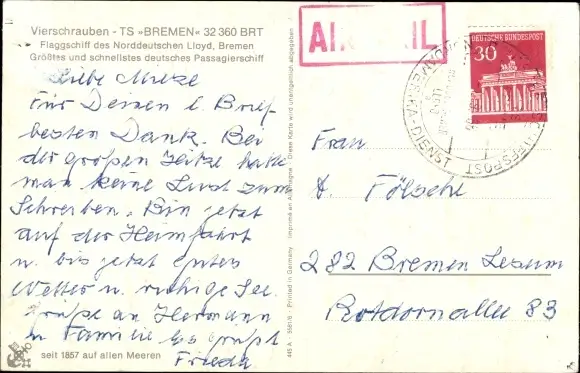 Vierschrauben - TS »BREMEN« 32 360 BRT
Flaggschiff des Norddeutschen Lloyd, Bremen
Größtes und schnellstes deutsches Passagierschiff
Liebe Mieze
Für Deinen l. Brief
besten Dank. Bei
der großen Hitze hatte
man keine Lust zum
Schreiben. Bin jetzt
auf der Heimfahrt
u. bis jetzt gutes
Wetter u. ruhige See.
Grüße an Hermann
u. Familie Es grüßt
Frieda
seit 1857 auf allen Meeren
445 A
Printed in Germany
Imprimé en Allemagne
Diese Karte wird unentgeltlich abgegeben
AIR MAIL
DEUTSCHE BUNDESPOST
30
SCHIFFSPOST
AMERIKA-DIENST
Frau
A. Fölsche
282 Bremen Lesum
Rotdornallee 83